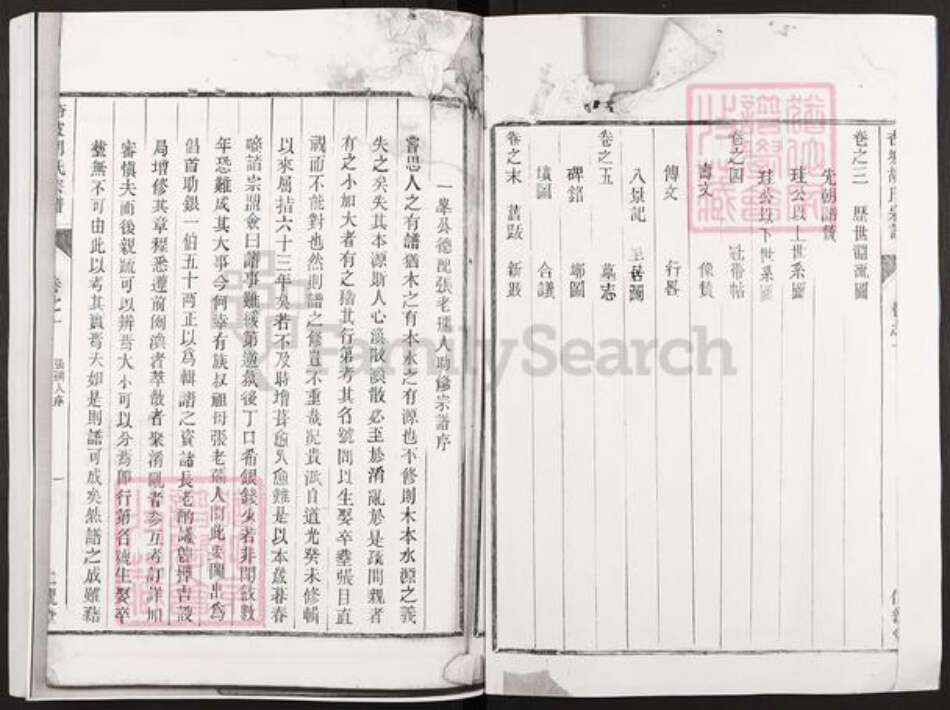 卷之三 歷世淵流圖
先朝譜賛
珪公以上世系圖
珪公以下世系圖
卷之四 冠帶帖
壽文 像賛
傳文 行畧
八景記 里居圖
卷之五 墓志
碑銘 塋圖
墳圖 合議
卷之末 舊跋 新跋
張老孺人助修宗譜序
嘗思人之有譜猶木之有本水之有源也不修則木本水源之義
失之矣失其本源斯人心渙散渙散必至於淆亂於是疏間親者
有之小加大者有之揆其行第考其名號問以生娶卒塟張目直
視而不能對也然則譜之修豈不重哉況貴派自道光癸未修輯
以來屈指六十三年矣若不及時增葺愈久愈難是以本歲暮春
諸宗盟僉曰譜事難緩第遭 後丁口希 錢少若非閱 數
年恐難成其大事今何幸有族叔祖母張老孺人聞此 出為
倡首助銀一伯五十兩正以為輯譜之資諸長老酌議 擇吉設
局增修其章程悉遵前例渙者萃散者聚淆亂者參互考訂詳加
審慎夫而後親疏可以辨焉大小可以分焉即行第名號生娶卒
塟無不可由此以考其實焉夫如是則譜可成矣然譜之成雖
卷之一
張孺人序
一
FamilySearch